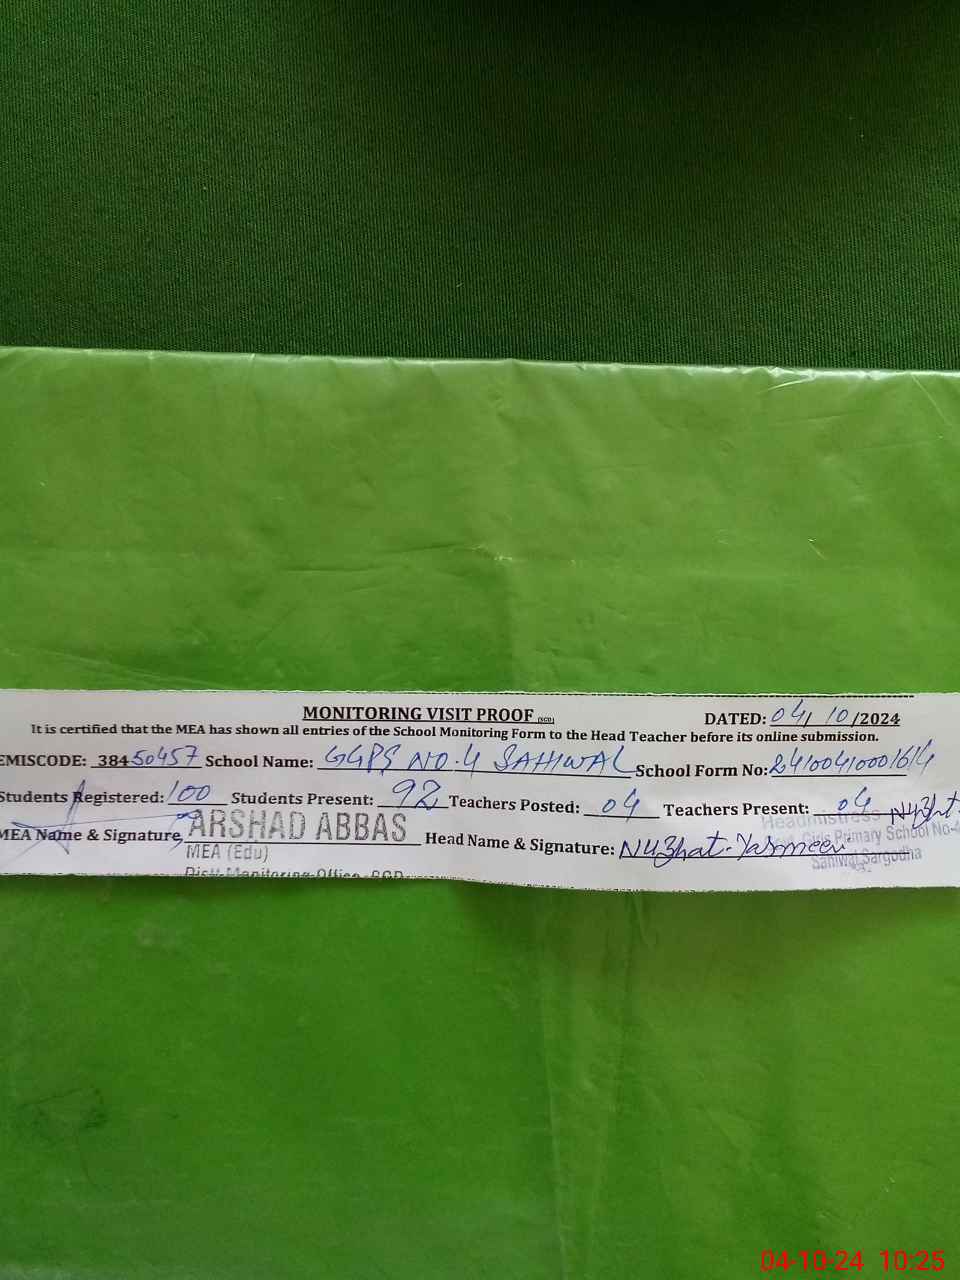 MONITORING VISIT PROOF (SGD)
DATED: 04/10/2024
It is certified that the MEA has shown all entries of the School Monitoring Form to the Head Teacher before its online submission.
EMISCODE: 38450457 School Name: GGPS NO.4 SAHIWAL School Form No: 24100410001614
Students Registered: 100 Students Present: 92 Teachers Posted: 04 Teachers Present: 04
MEA Name & Signature ARSHAD ABBAS Head Name & Signature: Nuzhat Yasmeen
MEA (Edu)
Distt. Monitoring Office, SGD
Headmistress Nuzhat
Girls Primary School No-4
Sahiwal Sargodha
04-10-24 10:25